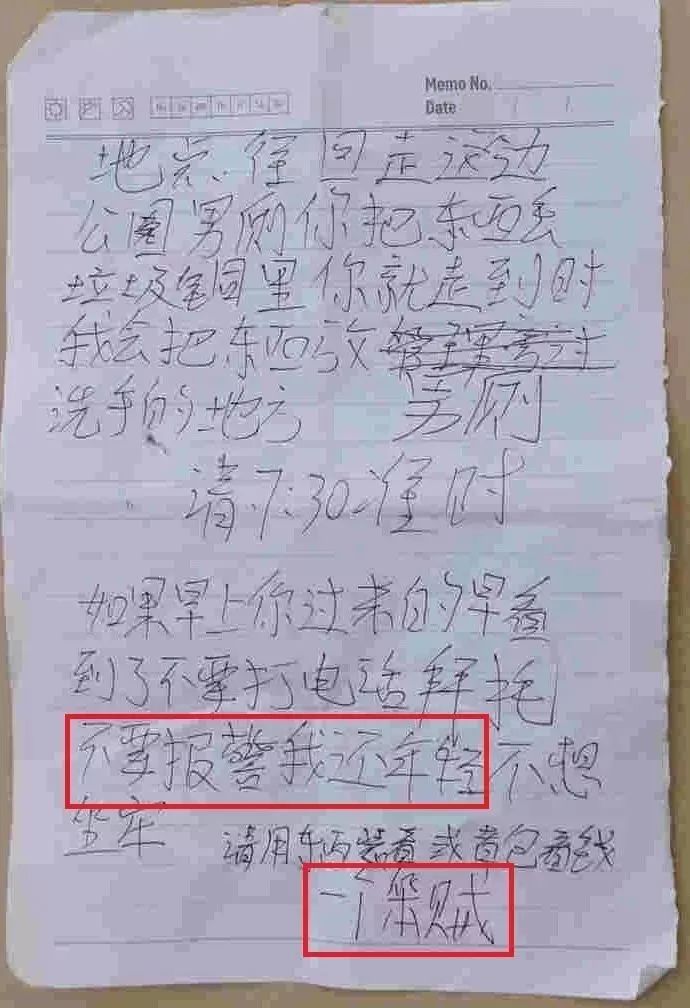 Memo No.
Date / /
地点、往回走这边
公園男厕你把东西丢
垃圾筒里你就走到时
我会把东西放
洗手的地方 男厕
请7:30准时
如果早上你过来的早看
到了不要打电话拜托
不要报警我还年轻不想
坐牢 请用东西装着或包着钱
一个笨贼